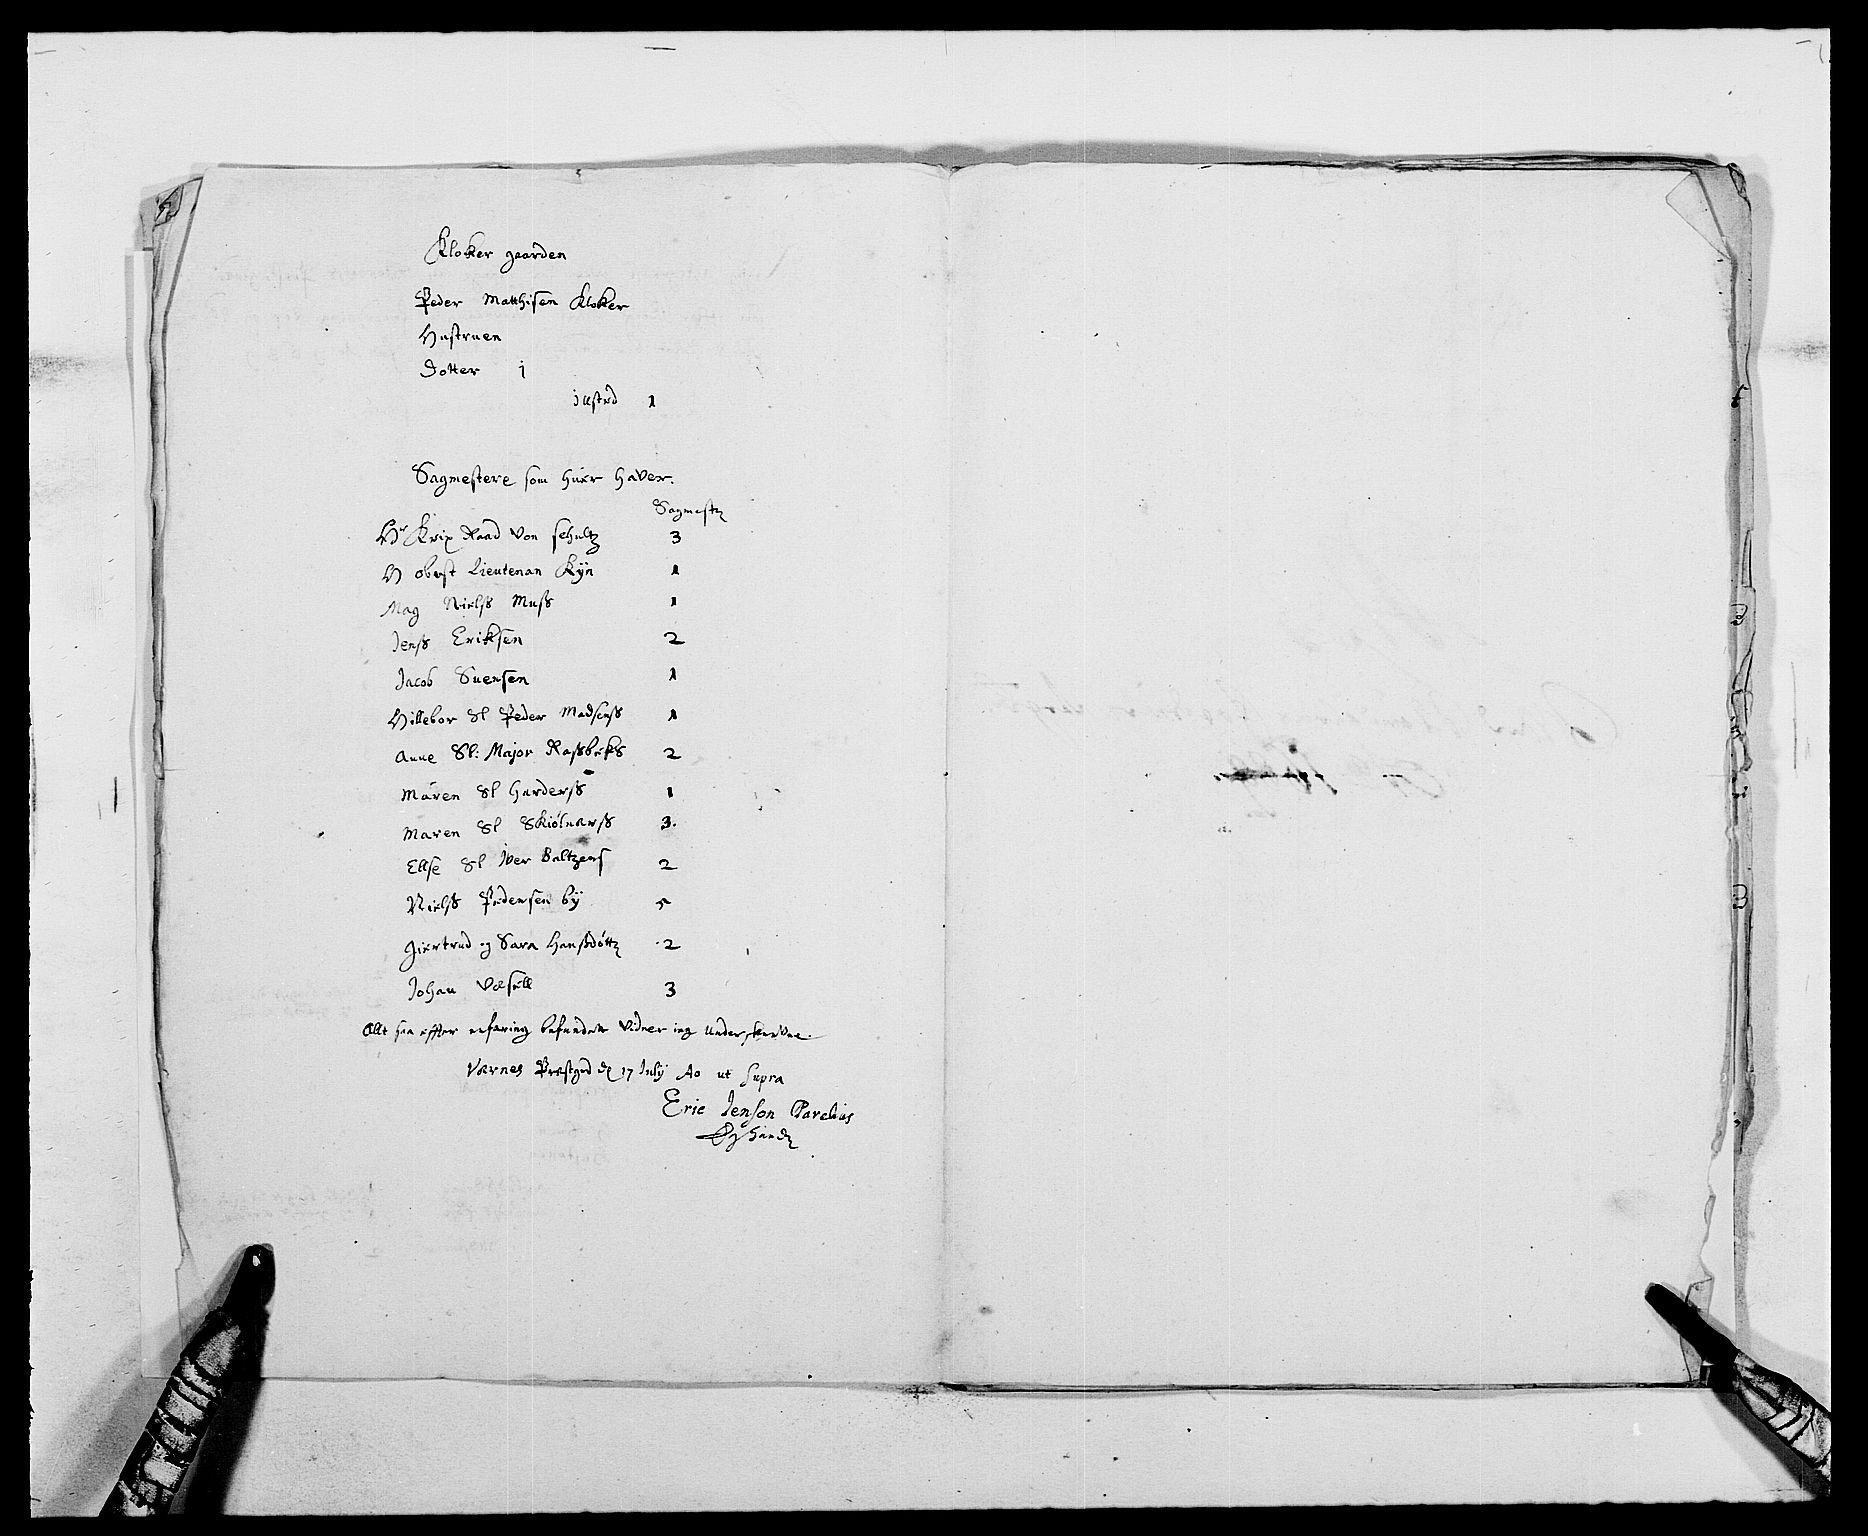 Kloker gaarden
Peder Matthisen Kloker
Hustruen
Dotter j
Ilsted 1
Sagmestere som huer haver.
Sagmestr
Hr Krix Raad von schultz 3
H oberst Lieutenan Kÿn 1
Mag Nielss Muss 1
Jenss Eriksen 2
Jacob Suensen 1
Hillebor Sl Peder Madsenss 1
Anne Sl: Major Rossbeks 2
Maren Sl Harderss 1
Maren Sl Skiölnarss 3.
Ellse Sl Iver Baltzens 2
Nielss Pedersen bÿ 5
Giertrud og Sara Hanssdöttr 2
Johan Vesell 3
Allt saa effter erfaring befunden Vidner ieg Underskrevne
Værnes Præstgrd d 17 Julÿ Ao ut supra
Eric Jenson Parelius
Eghand